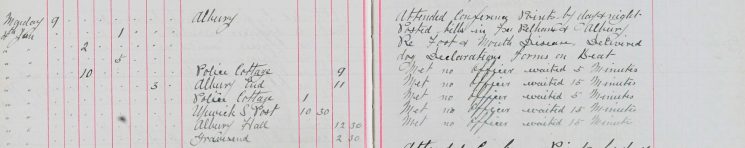 Monday 9 Albury Attended Conference Points by day & night
4th Jan 1 Posted bills in Fx Pelham & Albury
" " 2 Re Foot & Mouth Disease, Delivered
" " 5 dog Declarations Forms on Beat
" " 10 Police Cottage 9 Met no Officer waited 5 Minutes
" " 3 Albury End 11 Met no Officer waited 15 Minutes
" " Police Cottage 1 Met no Officer waited 5 Minutes
" " Upwick S. Post 10 30 Met no Officer waited 15 Minutes
" " Albury Hall 12 30 Met no Officer waited 15 Minute
" " Gravesend 2 30